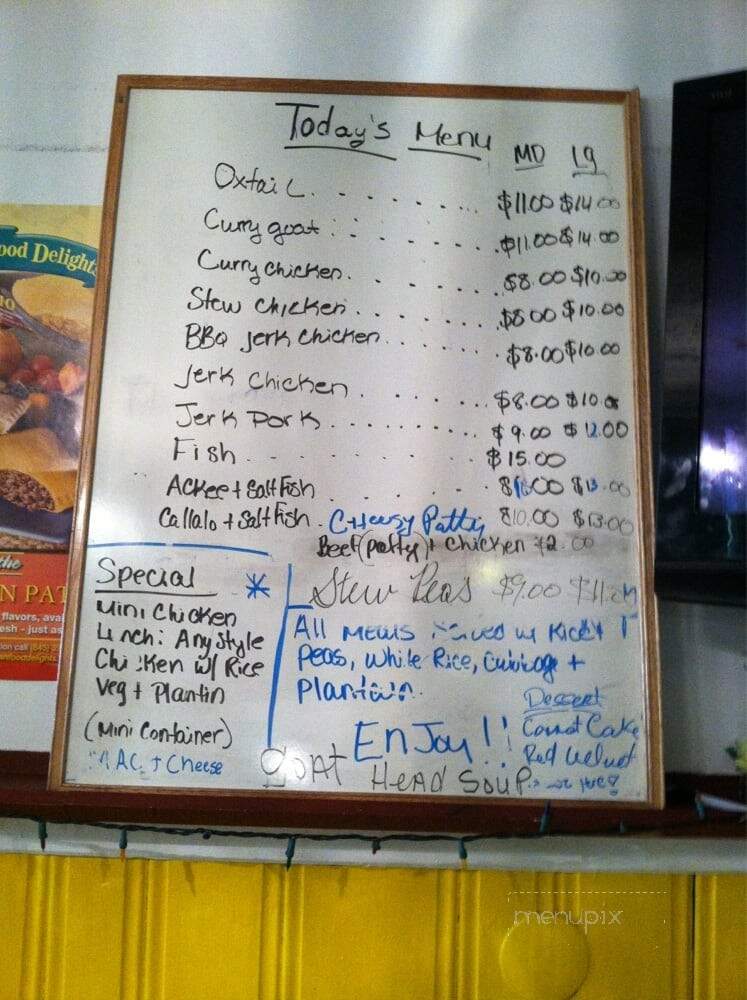 Today's Menu MD Lg
Oxtail . . . . . . . . $11.00 $14.00
Curry goat . . . . . . . . $11.00 $14.00
Curry chicken . . . . . . . $8.00 $10.00
Stew chicken . . . . . . . $8.00 $10.00
BBQ Jerk Chicken . . . . . . $8.00 $10.00
Jerk Chicken . . . . . . . $8.00 $10.0
Jerk Pork . . . . . . . . $9.00 $12.00
Fish . . . . . . . . $15.00
Ackee + Salt Fish . . . . . . $13.00
Callalo + Salt Fish . Cheesy Patty $10.00 $13.00
Beef (patty) + Chicken $2.00
Stew Peas $9.00
Special *
Mini Chicken
Lunch: Any Style
Chicken w/ Rice
Veg + Plantin
(Mini Container)
MAC + Cheese
All Meals served w/ Rice +
Peas, White Rice, Cabbage +
Plantain.
Enjoy!!
Dessert
Carrot Cake
Red Velvet
goat Head Soup
ood Delights
the
N PAT
flavors, avai
esh - just as
menupix